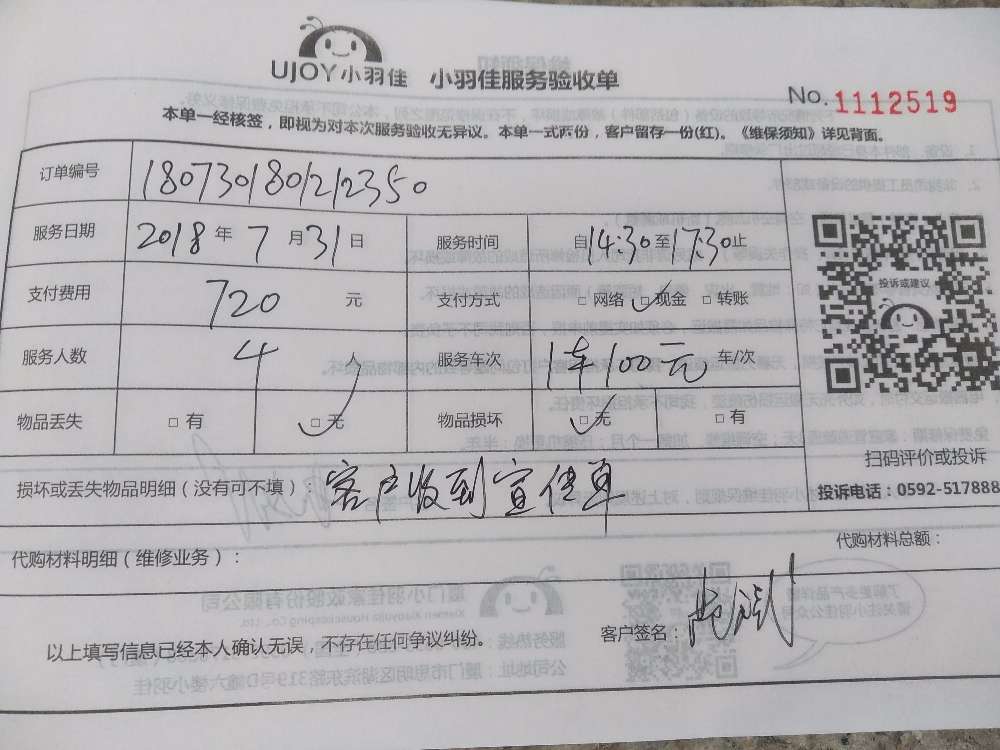 UJOY小羽佳 小羽佳服务验收单
No. 1112519
本单一经核签，即视为对本次服务验收无异议。本单一式两份，客户留存一份(红)。《维保须知》详见背面。
订单编号 180730180212350
服务日期 2018 年 7 月 31 日 服务时间 自14:30至17:30止
投诉或建议
支付费用 720 元 支付方式 □ 网络 □ 现金 □ 转账
服务人数 4 人 服务车次 1车100元 车/次
物品丢失 □ 有 □ 无 物品损坏 □ 无 □ 有
扫码评价或投诉
损坏或丢失物品明细（没有可不填）：客户收到宣传单
投诉电话：0592-517888
代购材料明细（维修业务）：
代购材料总额：
客户签名：
以上填写信息已经本人确认无误，不存在任何争议纠纷。